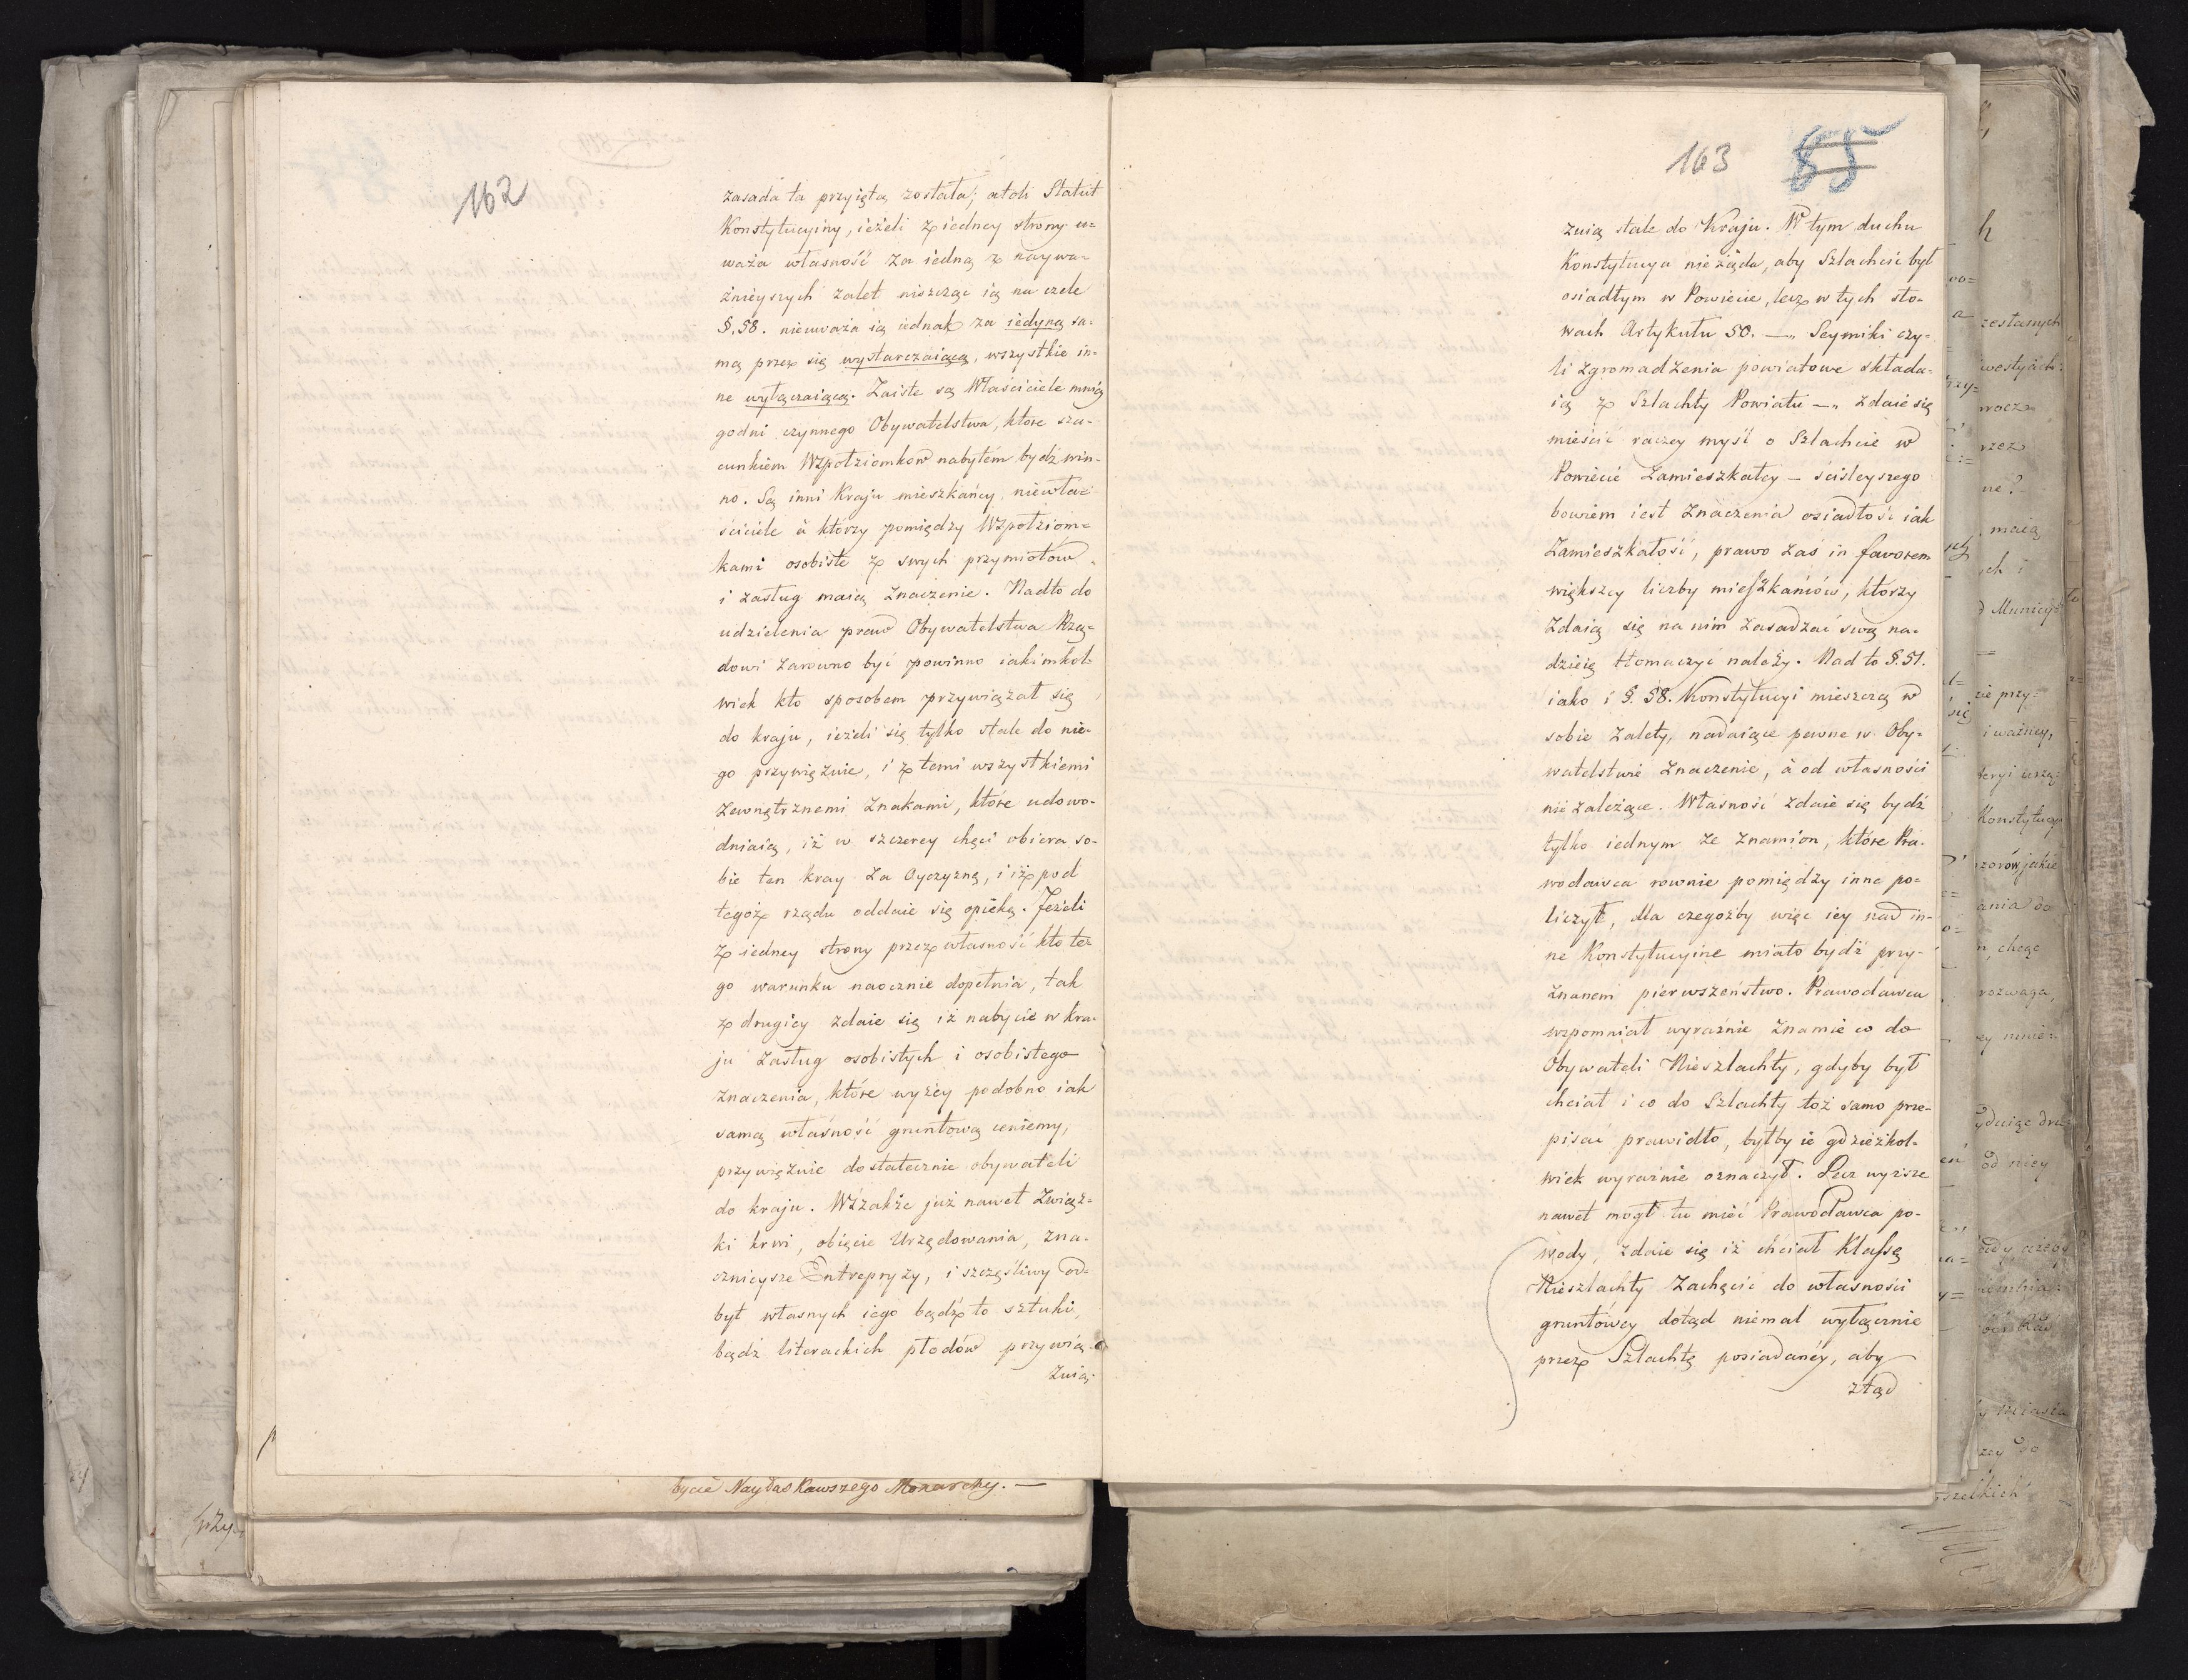 162
zasada ta przyiętą została; atoli Statut
Konstytucyiny, ieżeli z iedney strony u=
waża własność za iedną z naywa=
żnieyszych zalet mieszcząc ią na czele
§. 58. nieuważa ią iednak za iedyną sa=
mą przez się wystarczaiącą, wszystkie in=
ne wyłączaiącą. Zaiste są Właściciele mniey
godni czynnego Obywatelstwa, które sza=
cunkiem Wzpołziomków nabytém bydź win=
no. Są inni Kraju mieszkańcy niewła=
ściciele à którzy pomiędzy Wzpołziom=
kami osobiste z swych przymiotów
i zasług maią znaczenie. Nadto do
udzielenia praw Obywatelstwa Rzą=
dowi zarowno być powinno iakimkol=
wiek kto sposobem przywiązał się
do kraju, ieżeli się tylko stale do nie=
go przywięzuie, i z temi wszystkiemi
zewnętrznemi znakami, które udowo=
dniaią, iż w szczerey chęci obiera so=
bie ten kray za Oyczyznę, i iż pod
tegoż rządu oddaie się opiekę. Jeżeli
z iedney strony przez własność kto te=
go warunku naocznie dopełnia, tak
z drugiey zdaie się iż nabycie w kra=
ju zasług osobistych i osobistego
znaczenia, które wyżey podobno iak
samą własność gruntową ceniemy,
przywięzuie dostatecznie obywateli
do kraju. Wszakże już nawet związ=
ki krwi, obięcie Urzędowania, zna=
cznieysze Entrepryzy, i szczęśliwy od=
byt własnych iego bądź to sztuki,
bądź literackich płodów przywią=
zuią
tycie Naydaskawszego Monarchy. —
163 85
zuią stale do Kraju. W tym duchu
Konstytucya nie żąda, aby Szlachcic był
osiadłym w Powiecie, lecz w tych sło=
wach Artykułu 50. —„ Seymiki czy=
li zgromadzenia powiatowe składa=
ią z Szlachty Powiatu —„ zdaie się
mieścić raczey myśl o Szlachcie w
Powiecie zamieszkałey — ścisleyszego
bowiem iest znaczenia osiadłość iak
zamieszkałość, prawo zaś in favorem
większey liczby mieszkańców, którzy
zdaią się na nim zasadzać swą na=
dzieię tłomaczyć należy. Nad to §. 51.
iako i §. 58. Konstytucyi mieszczą w
sobie zalety, nadaiące pewne w Oby=
watelstwie znaczenie, à od własności
nie zależące. Własność zdaie się bydź
tylko iednym ze znamion, które Pra=
wodawca rownie pomiędzy inne po=
liczył, dla czegożby więc iey nad in=
ne Konstytucyine miało bydź przy=
znanem pierwszeństwo. Prawodawca
wspomniał wyraźnie znamie co do
Obywateli Nieszlachty, gdyby był
chciał i co do Szlachty toż samo prze=
pisać prawidło, byłby ie gdzieżkol=
wiek wyraźnie oznaczył. Lecz wyższe
nawet mogł tu mieć Prawodawca po=
wody, zdaie się iż chciał Klassę
Nieszlachty zachęcić do własności
gruntówey dotąd niemal wyłącznie
przez Szlachtę posiadanéy, aby
ztąd